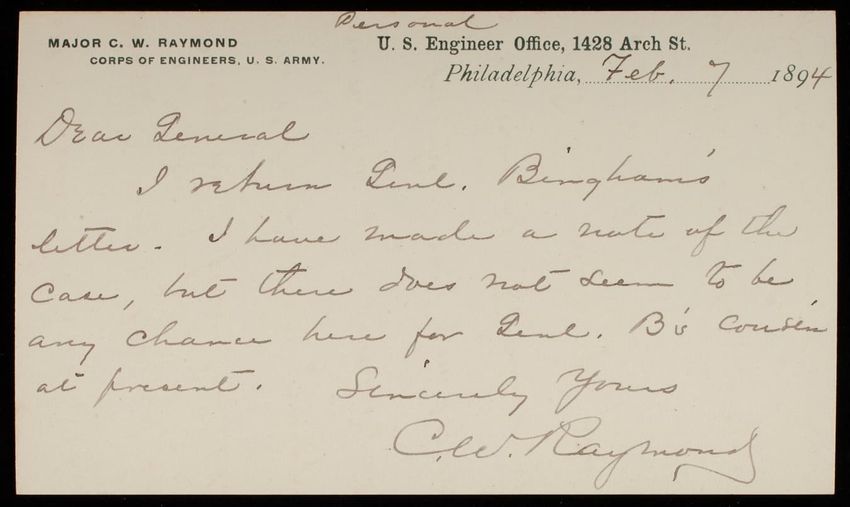 Personal
MAJOR C. W. RAYMOND
CORPS OF ENGINEERS, U. S. ARMY.
U. S. Engineer Office, 1428 Arch St.
Philadelphia, Feb. 7 1894
Dear General
I return Genl. Bingham's
letter. I have made a note of the
case, but there does not seem to be
any chance here for Genl. B's cousin
at present. Sincerely Yours
C. W. Raymond